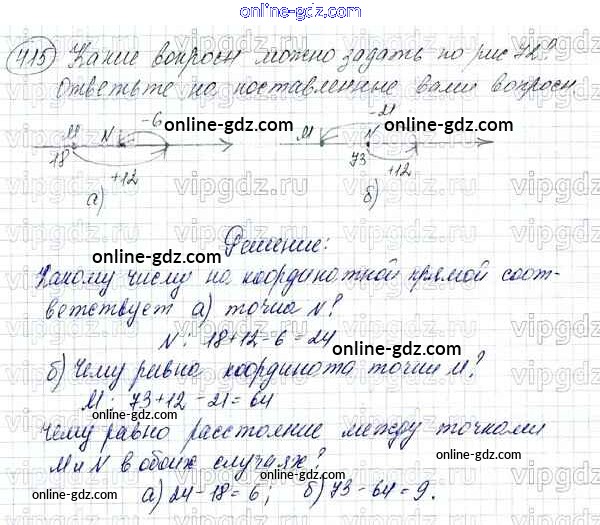 online-gdz.com
415 Какие вопросы можно задать по рис 72?
Ответьте на поставленные вами вопросы
-6 -21
M N M N
18 73
+12 +12
а) б)
online-gdz.com online-gdz.com
Решение:
online-gdz.com
Какому числу на координатной прямой соот-
ветствует а) точка N?
N: 18+12-6=24
online-gdz.com
б) Чему равна координата точки M?
M: 73+12-21=64
online-gdz.com
Чему равно расстояние между точками
M и N в обоих случаях?
online-gdz.com
а) 24-18=6; б) 73-64=9.
online-gdz.com online-gdz.com
vipgdz.ru